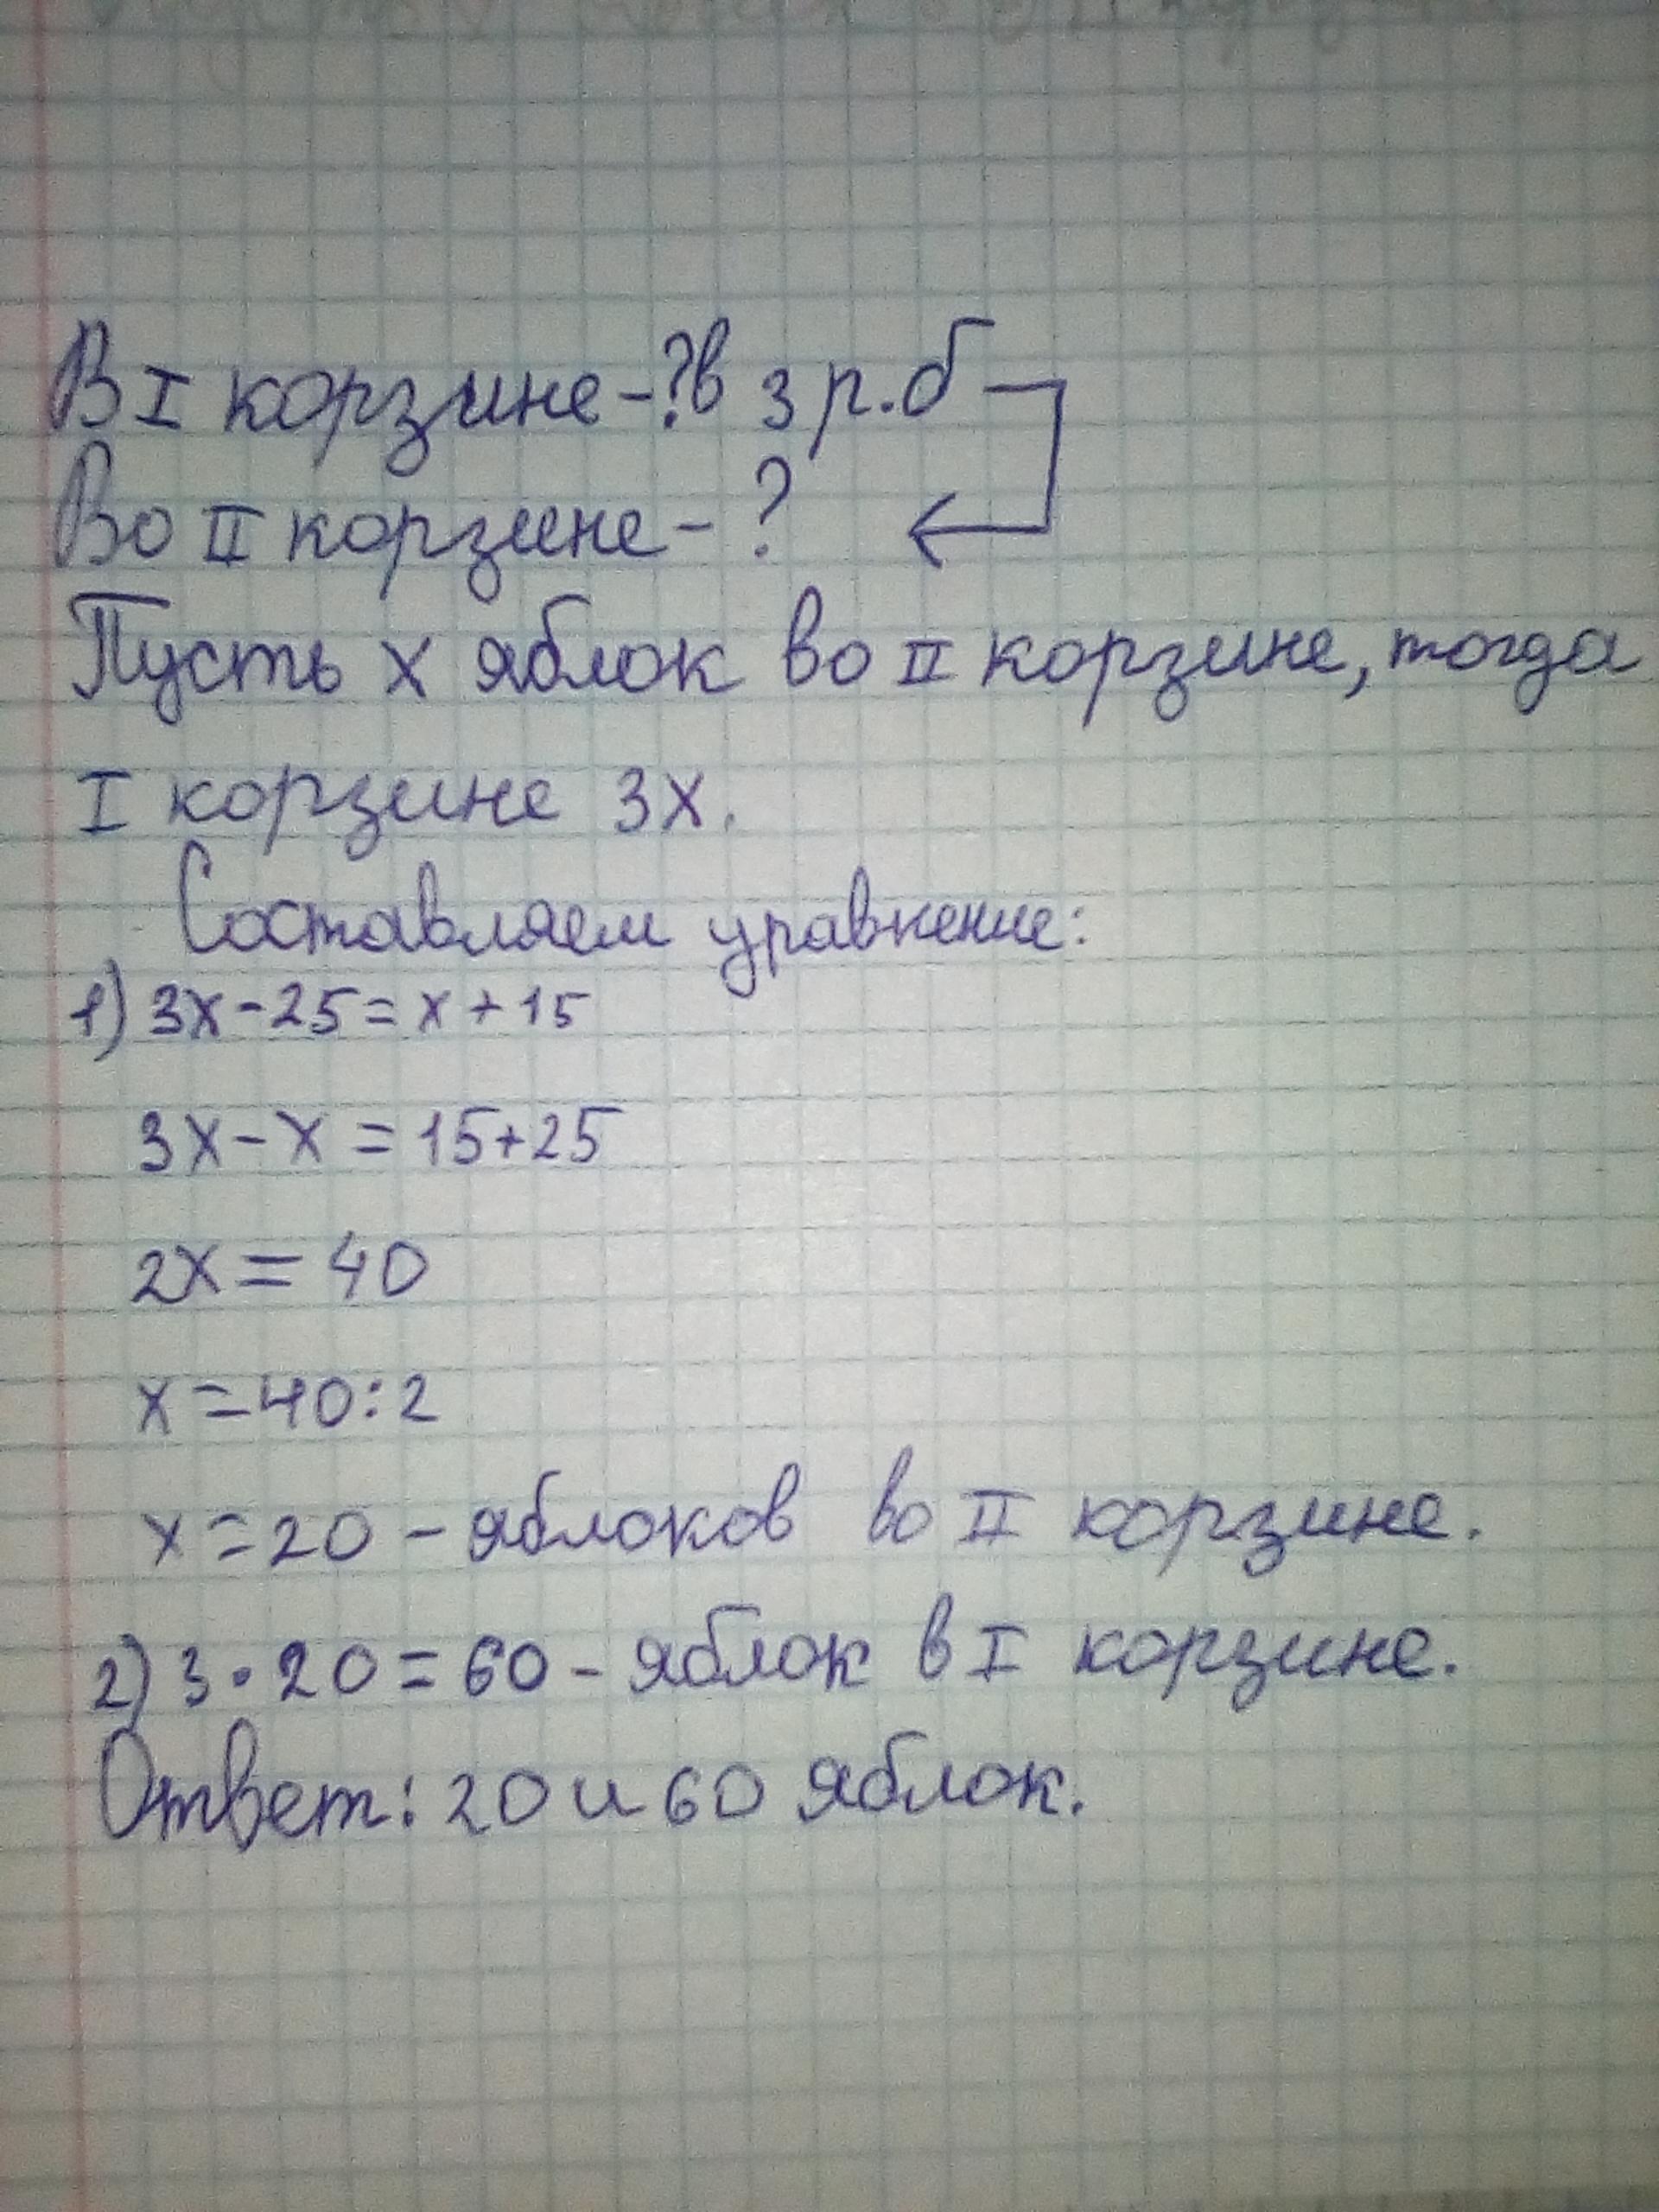 В I корзине - ? в 3 р. б
Во II корзине - ?
Пусть х яблок во II корзине, тогда
I корзине 3х.
Составляем уравнение:
1) 3х - 25 = х + 15
3х - х = 15 + 25
2х = 40
х = 40 : 2
х = 20 - яблоков во II корзине.
2) 3 · 20 = 60 - яблок в I корзине.
Ответ: 20 и 60 яблок.